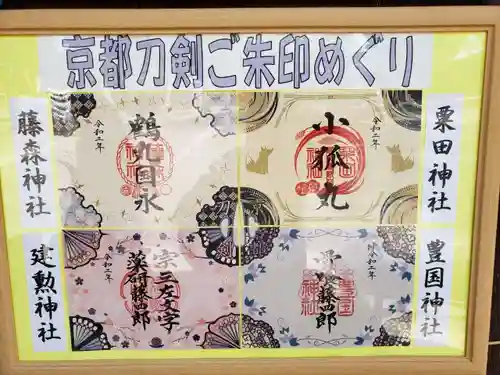 京都刀剣ご朱印めぐり
藤森神社
鶴丸国永
令和二年
小狐丸
令和二年
粟田神社
建勲神社
宗三左文字
薬研藤四郎
令和二年
骨喰藤四郎
令和二年
豊国神社